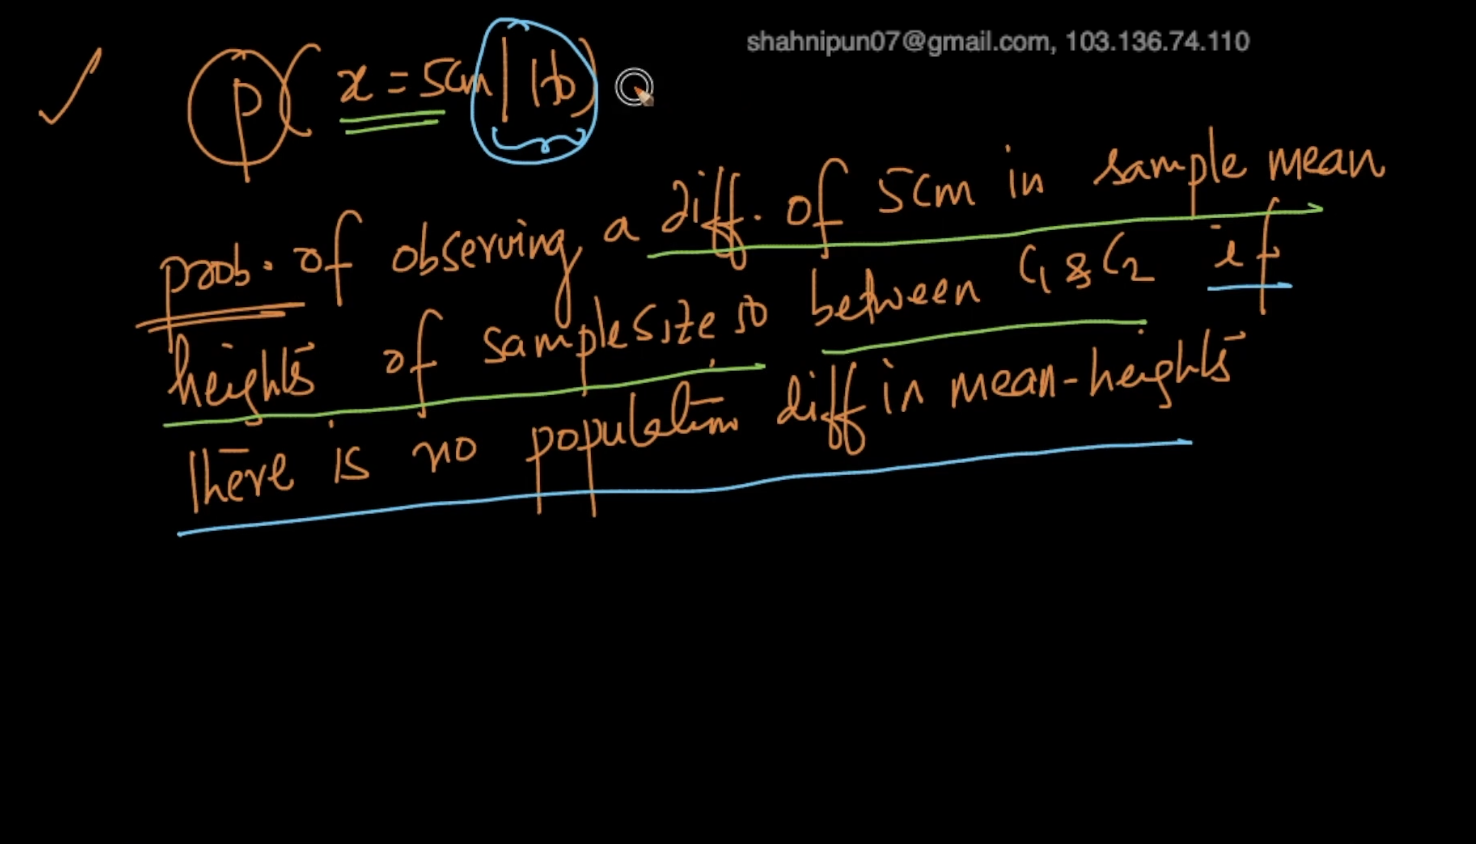 shahnipun07@gmail.com, 103.136.74.110
✓ P(x = 5cm | H0)
prob. of observing a diff. of 5cm in sample mean
heights of sample size 50 between C1 & C2 if
there is no population diff in mean-heights